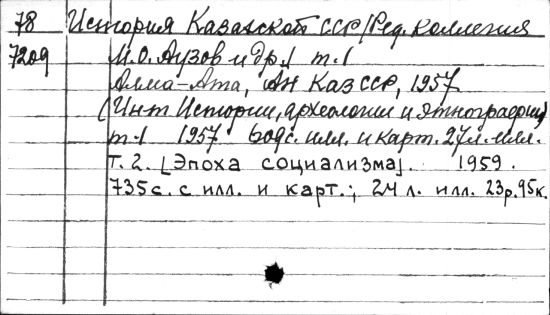 78 История Казахской ССР/Ред. коллегия
7209 М.О. Аузов и др./ т.1
Алма-Ата, АН КазССР, 1957
(Инт Истории, археологии и этнографии)
т.1 1957 609с. илл. и карт. 27л. илл.
Т. 2. [Эпоха социализма]. 1959.
735с. с илл. и карт.; 24 л. илл. 23р.95к.